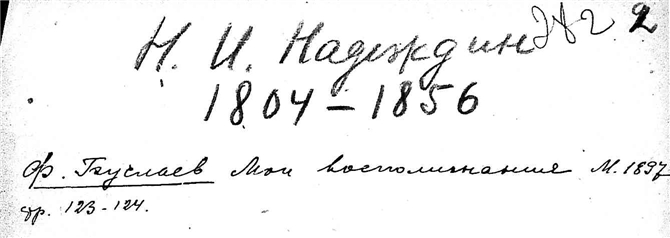 Н. И. Надеждин 2
1804 – 1856
Ф. Буслаев Мои воспоминания М. 1897
стр. 123-124.